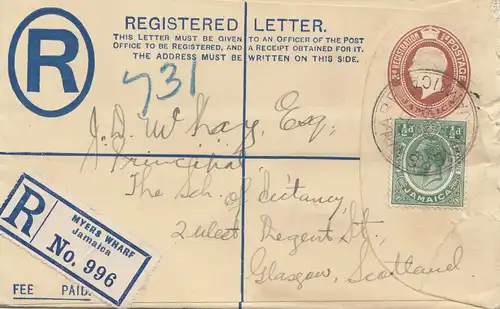 REGISTERED LETTER.
THIS LETTER MUST BE GIVEN TO AN OFFICER OF THE POST
OFFICE TO BE REGISTERED, AND A RECEIPT OBTAINED FOR IT.
THE ADDRESS MUST BE WRITTEN ON THIS SIDE.
R
2D REGISTRATION 1D POSTAGE
731
J. D. McKay, Esq,
Principal,
The Sch. of
Regent St.,
Glasgow, Scotland.
½d
JAMAICA
R
MYERS WHARF
Jamaica
No. 996
FEE PAID.